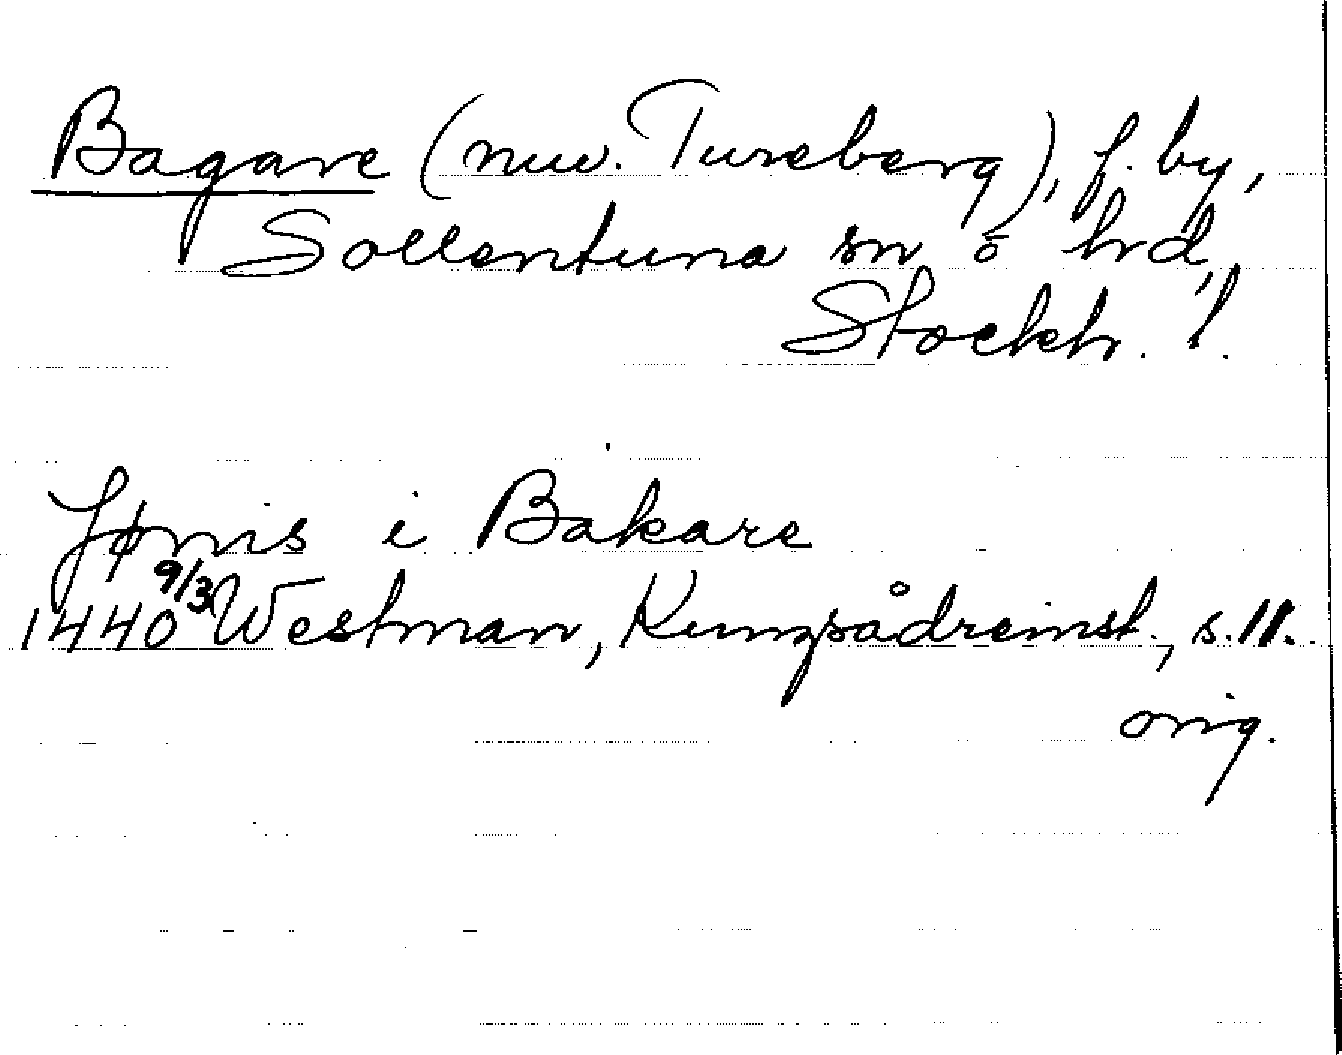 Bagare (nuv. Tureberg), f. by,
Sollentuna sn o hd,
Stockh. l.
Jønis i Bakare
1440 9/3 Westman, Kungsådreinst., s. 11.
orig.